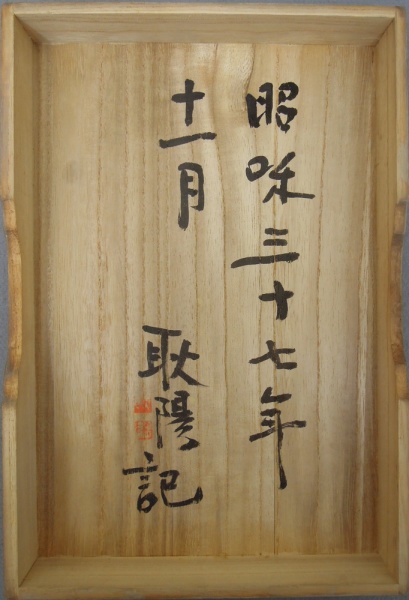 昭和三十七年
十一月
耿陽記